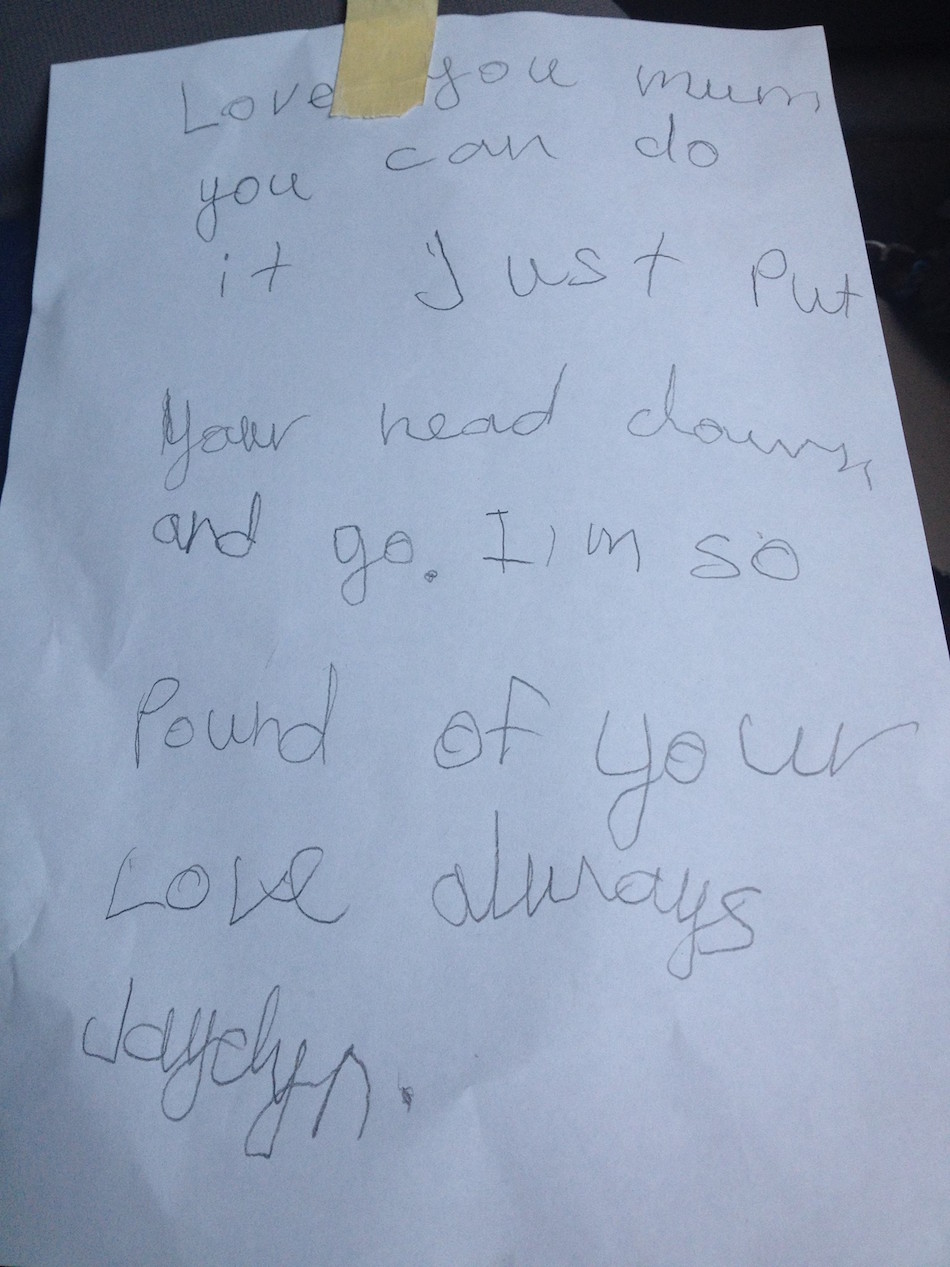 Love you mum
you can do
it Just Put
Your head down
and go. I'm so
Pound of your
Love always
Jaydyn.